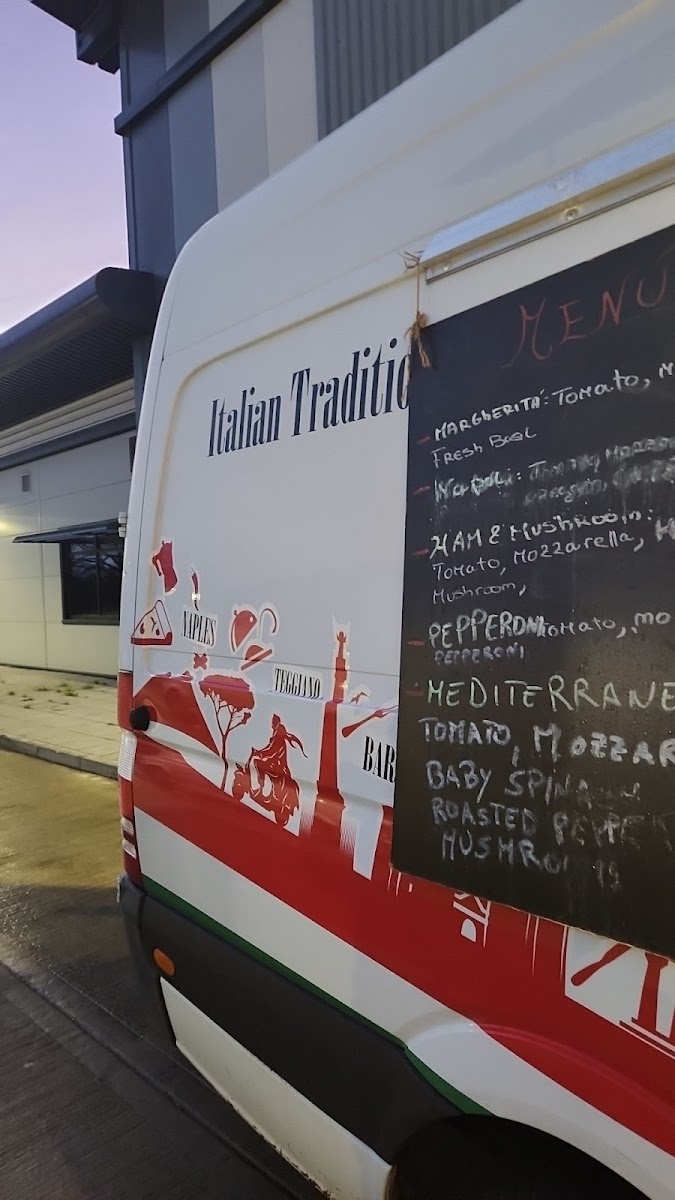 Italian Traditio
MENÚ
MARGHERITÁ: TOMATO, M
FRESH BASIL
NAPOLI:
HAM & MUSHROOM:
TOMATO, MOZZARELLA, H
MUSHROOM,
PEPPERONI TOMATO, MO
PEPPERONI
MEDITERRANE
TOMATO, MOZZAR
BABY SPINA
ROASTED PEPPE
MUSHRO
NAPLES
TEGGIANO
BAR